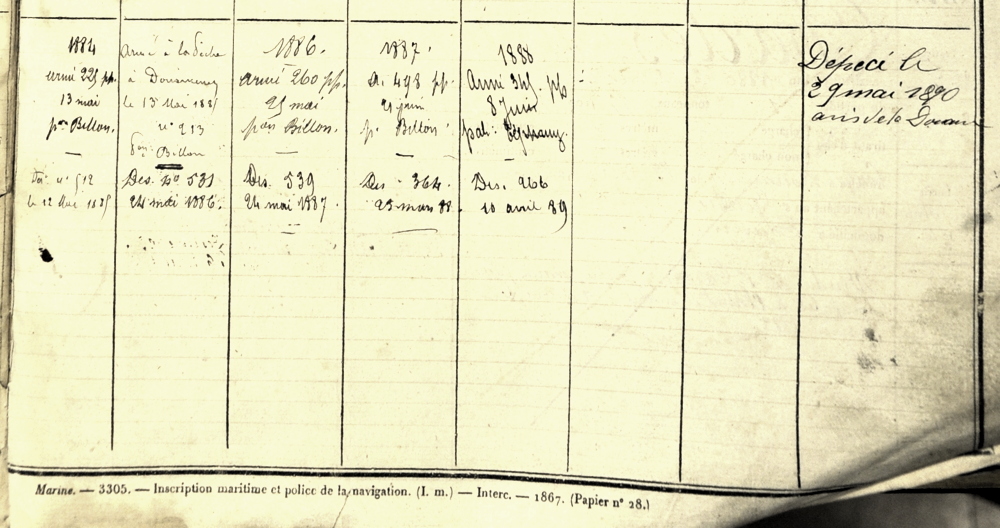 1884
armé 225 pp.
13 mai
pon Billon.
Des. n° 512
le 12
Armé à la Pêche
à Douarnenez
le 15 Mai 1885
n° 213
pon: Billon
Des. n° 531
24 mai 1886.
1886.
armé 260 pp.
25 mai
pon Billon.
Des. 539
24 mai 1887.
1887.
A. 498 pp.
21 juin
p. Billon
Des - 364.
23 mars 88.
1888
Armé 345. pp
8 Juin
pat:
Des. 266
10 avril 89
Dépecé le
29 mai 1890
avis de la Douane
Marine. — 3305. — Inscription maritime et police de la navigation. (I. m.) — Interc. — 1867. (Papier n° 28.)